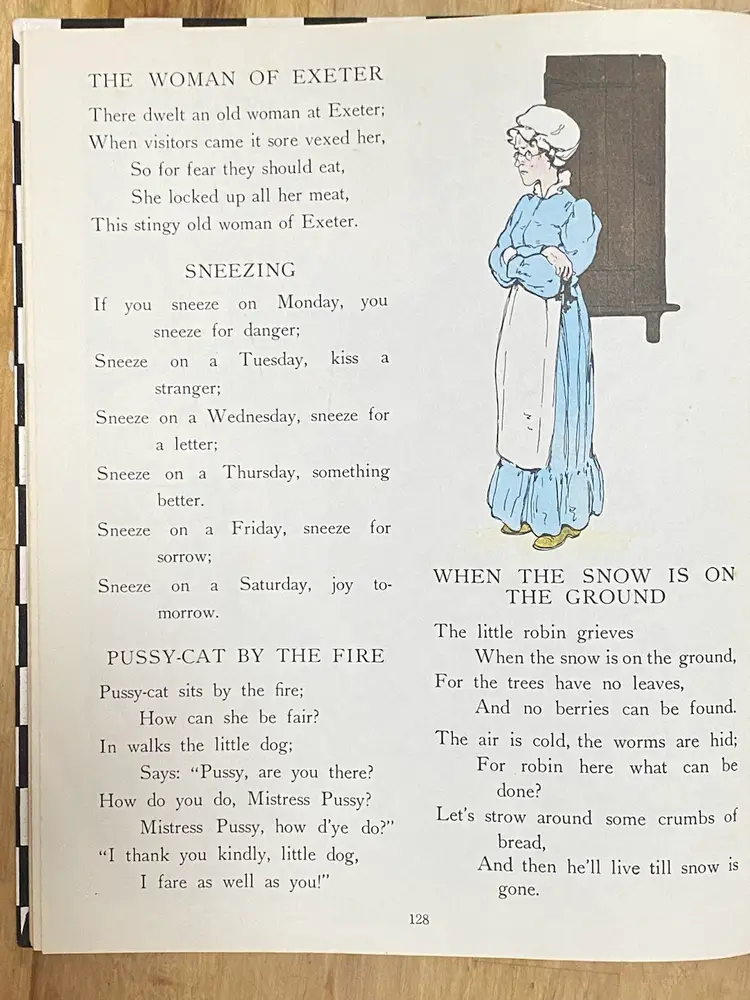 THE WOMAN OF EXETER
There dwelt an old woman at Exeter;
When visitors came it sore vexed her,
So for fear they should eat,
She locked up all her meat,
This stingy old woman of Exeter.
SNEEZING
If you sneeze on Monday, you
sneeze for danger;
Sneeze on a Tuesday, kiss a
stranger;
Sneeze on a Wednesday, sneeze for
a letter;
Sneeze on a Thursday, something
better.
Sneeze on a Friday, sneeze for
sorrow;
Sneeze on a Saturday, joy to-
morrow.
PUSSY-CAT BY THE FIRE
Pussy-cat sits by the fire;
How can she be fair?
In walks the little dog;
Says: "Pussy, are you there?
How do you do, Mistress Pussy?
Mistress Pussy, how d'ye do?"
"I thank you kindly, little dog,
I fare as well as you!"
WHEN THE SNOW IS ON
THE GROUND
The little robin grieves
When the snow is on the ground,
For the trees have no leaves,
And no berries can be found.
The air is cold, the worms are hid;
For robin here what can be
done?
Let's strow around some crumbs of
bread,
And then he'll live till snow is
gone.
128